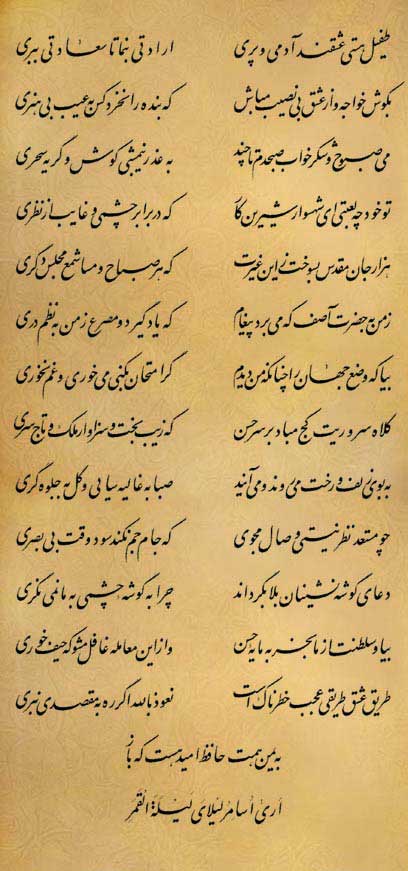 طفیل هستی عشقند آدمی و پری ارادتی بنما تا سعادتی ببری
بکوش خواجه و از عشق بی نصیب مباش که بنده را نخرد کس به عیب بی هنری
می صبوح و شکر خواب صبحدم تا چند به عذر نیم شبی کوش و گریه سحری
تو خود چه لعبتی ای شهسوار شیرین کار که در برابر چشمی و غایب از نظری
هزار جان مقدس بسوخت زین غیرت که هر صباح و مسا شمع مجلس دگری
ز من به حضرت آصف که می برد پیغام که یاد گیرد دو مصرع ز من به نظم دری
بیا که وضع جهان را چنانکه من دیدم گر امتحان بکنی می خوری و غم نخوری
کلاه سروریت کج مباد بر سر حسن که زیب بخت و سزاوار ملک و تاج سری
به بوی زلف و رخت می روند و می آیند صبا به غالیه سایی و گل به جلوه گری
چو مستعد نظر نیستی وصال مجوی که جام جم نکند سود وقت بی بصری
دعای گوشه نشینان بلا بگرداند چرا به گوشه چشمی به ما نمی نگری
بیا و سلطنت از ما بخر به مایه حسن و از این معامله غافل مشو که حیف خوری
طریق عشق طریقی عجب خطرناک است نعوذ بالله اگر ره به مقصدی نبری
به یمن همت حافظ امید هست که باز
أری أسامر لیلای لیلة القمر